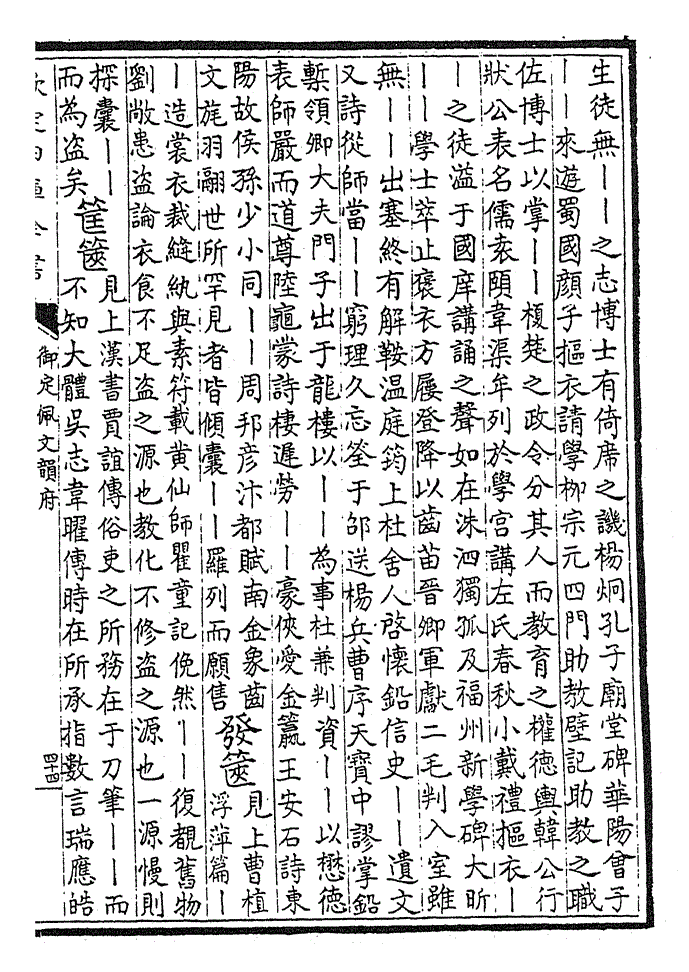 生徒無丨丨之志博士有倚席之譏楊炯孔子廟堂碑華陽曾子
丨丨來遊蜀國顔子摳衣請學柳宗元四門助教壁記助教之職
佐博士以掌丨丨榎楚之政令分其人而教育之權德輿韓公行
狀公表名儒袁頤韋渠牟列於學宫講左氏春秋小戴禮摳衣丨
丨之徒溢于國庠講誦之聲如在洙泗獨孤及福州新學碑大昕
丨丨學士萃止褒衣方屨登降以齒苗晉卿軍獻二毛判入室雖
無丨丨出塞終有解鞍温庭筠上杜舍人啓懷鉛信史丨丨遺文
又詩從師當丨丨窮理久忘筌于邵送楊兵曹序天寶中謬掌鉛
槧領卿大夫門子出于龍樓以丨丨為事杜兼判資丨丨以懋德
表師嚴而道尊陸龜蒙詩棲遲勞丨丨豪俠愛金籯王安石詩東
陽故侯孫少小同丨丨周邦彦汴都賦南金象齒
文旄羽翮世所罕見者皆傾囊丨丨羅列而願售
發篋
見上曹植
浮萍篇丨
丨造裳衣裁縫紈與素符載黄仙師瞿童記俛然丨丨復覩舊物
劉敞患盗論衣食不足盗之源也教化不修盗之源也一源慢則
探囊丨丨
而為盗矣
筐篋
見上漢書賈誼傳俗吏之所務在于刀筆丨丨而
不知大體吳志韋曜傳時在所承指數言瑞應皓
御定佩文韻府
四十四